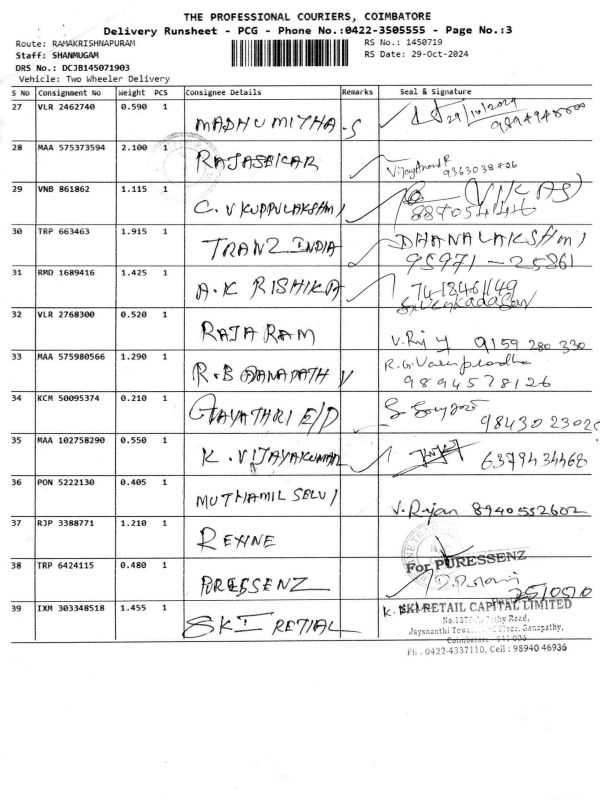 THE PROFESSIONAL COURIERS, COIMBATORE
Delivery Runsheet - PCG - Phone No.:0422-3505555 - Page No.:3
Route: RAMAKRISHNAPURAM RS No.: 1450719
Staff: SHANMUGAM RS Date: 29-Oct-2024
DRS No.: DCJB145071903
Vehicle: Two Wheeler Delivery
S No Consignment No Weight PCS Consignee Details Remarks Seal & Signature
27 VLR 2462740 0.590 1 MADHUMITHA.S 29/10/2024
28 MAA 575373594 2.100 1 RAJASEKAR VijayAnand R
29 VNB 861862 1.115 1 C.V KUPPULAKSHMI VIKAS
8890541426
30 TRP 663463 1.915 1 TRANZ INDIA DHANALAKSHMI
95971-25861
31 RMD 1689416 1.425 1 A.K RISHIKA 7418461149
32 VLR 2768300 0.520 1 RAJA RAM 9159 280 330
33 MAA 575980566 1.290 1 R.B GANAPATHY R.G.
9894578126
34 KCM 50095374 0.210 1 GAYATHRI E/D 9843023025
35 MAA 102758290 0.550 1 K.VIJAYAKUMAR 6379434468
36 PON 5222130 0.405 1 MUTHAMIL SELVI V.Rajan 8940552602
37 RJP 3388771 1.210 1 REXINE
38 TRP 6424115 0.480 1 PURESSENZ For PURESSENZ
39 IXM 303348518 1.455 1 SKI RETIAL SKI RETAIL CAPITAL LIMITED
Road,
Jaysnanthi Floor, Ganapathy,
Coimbatore - 641 006
Ph. 0422-4337110, Cell : 98940 46936